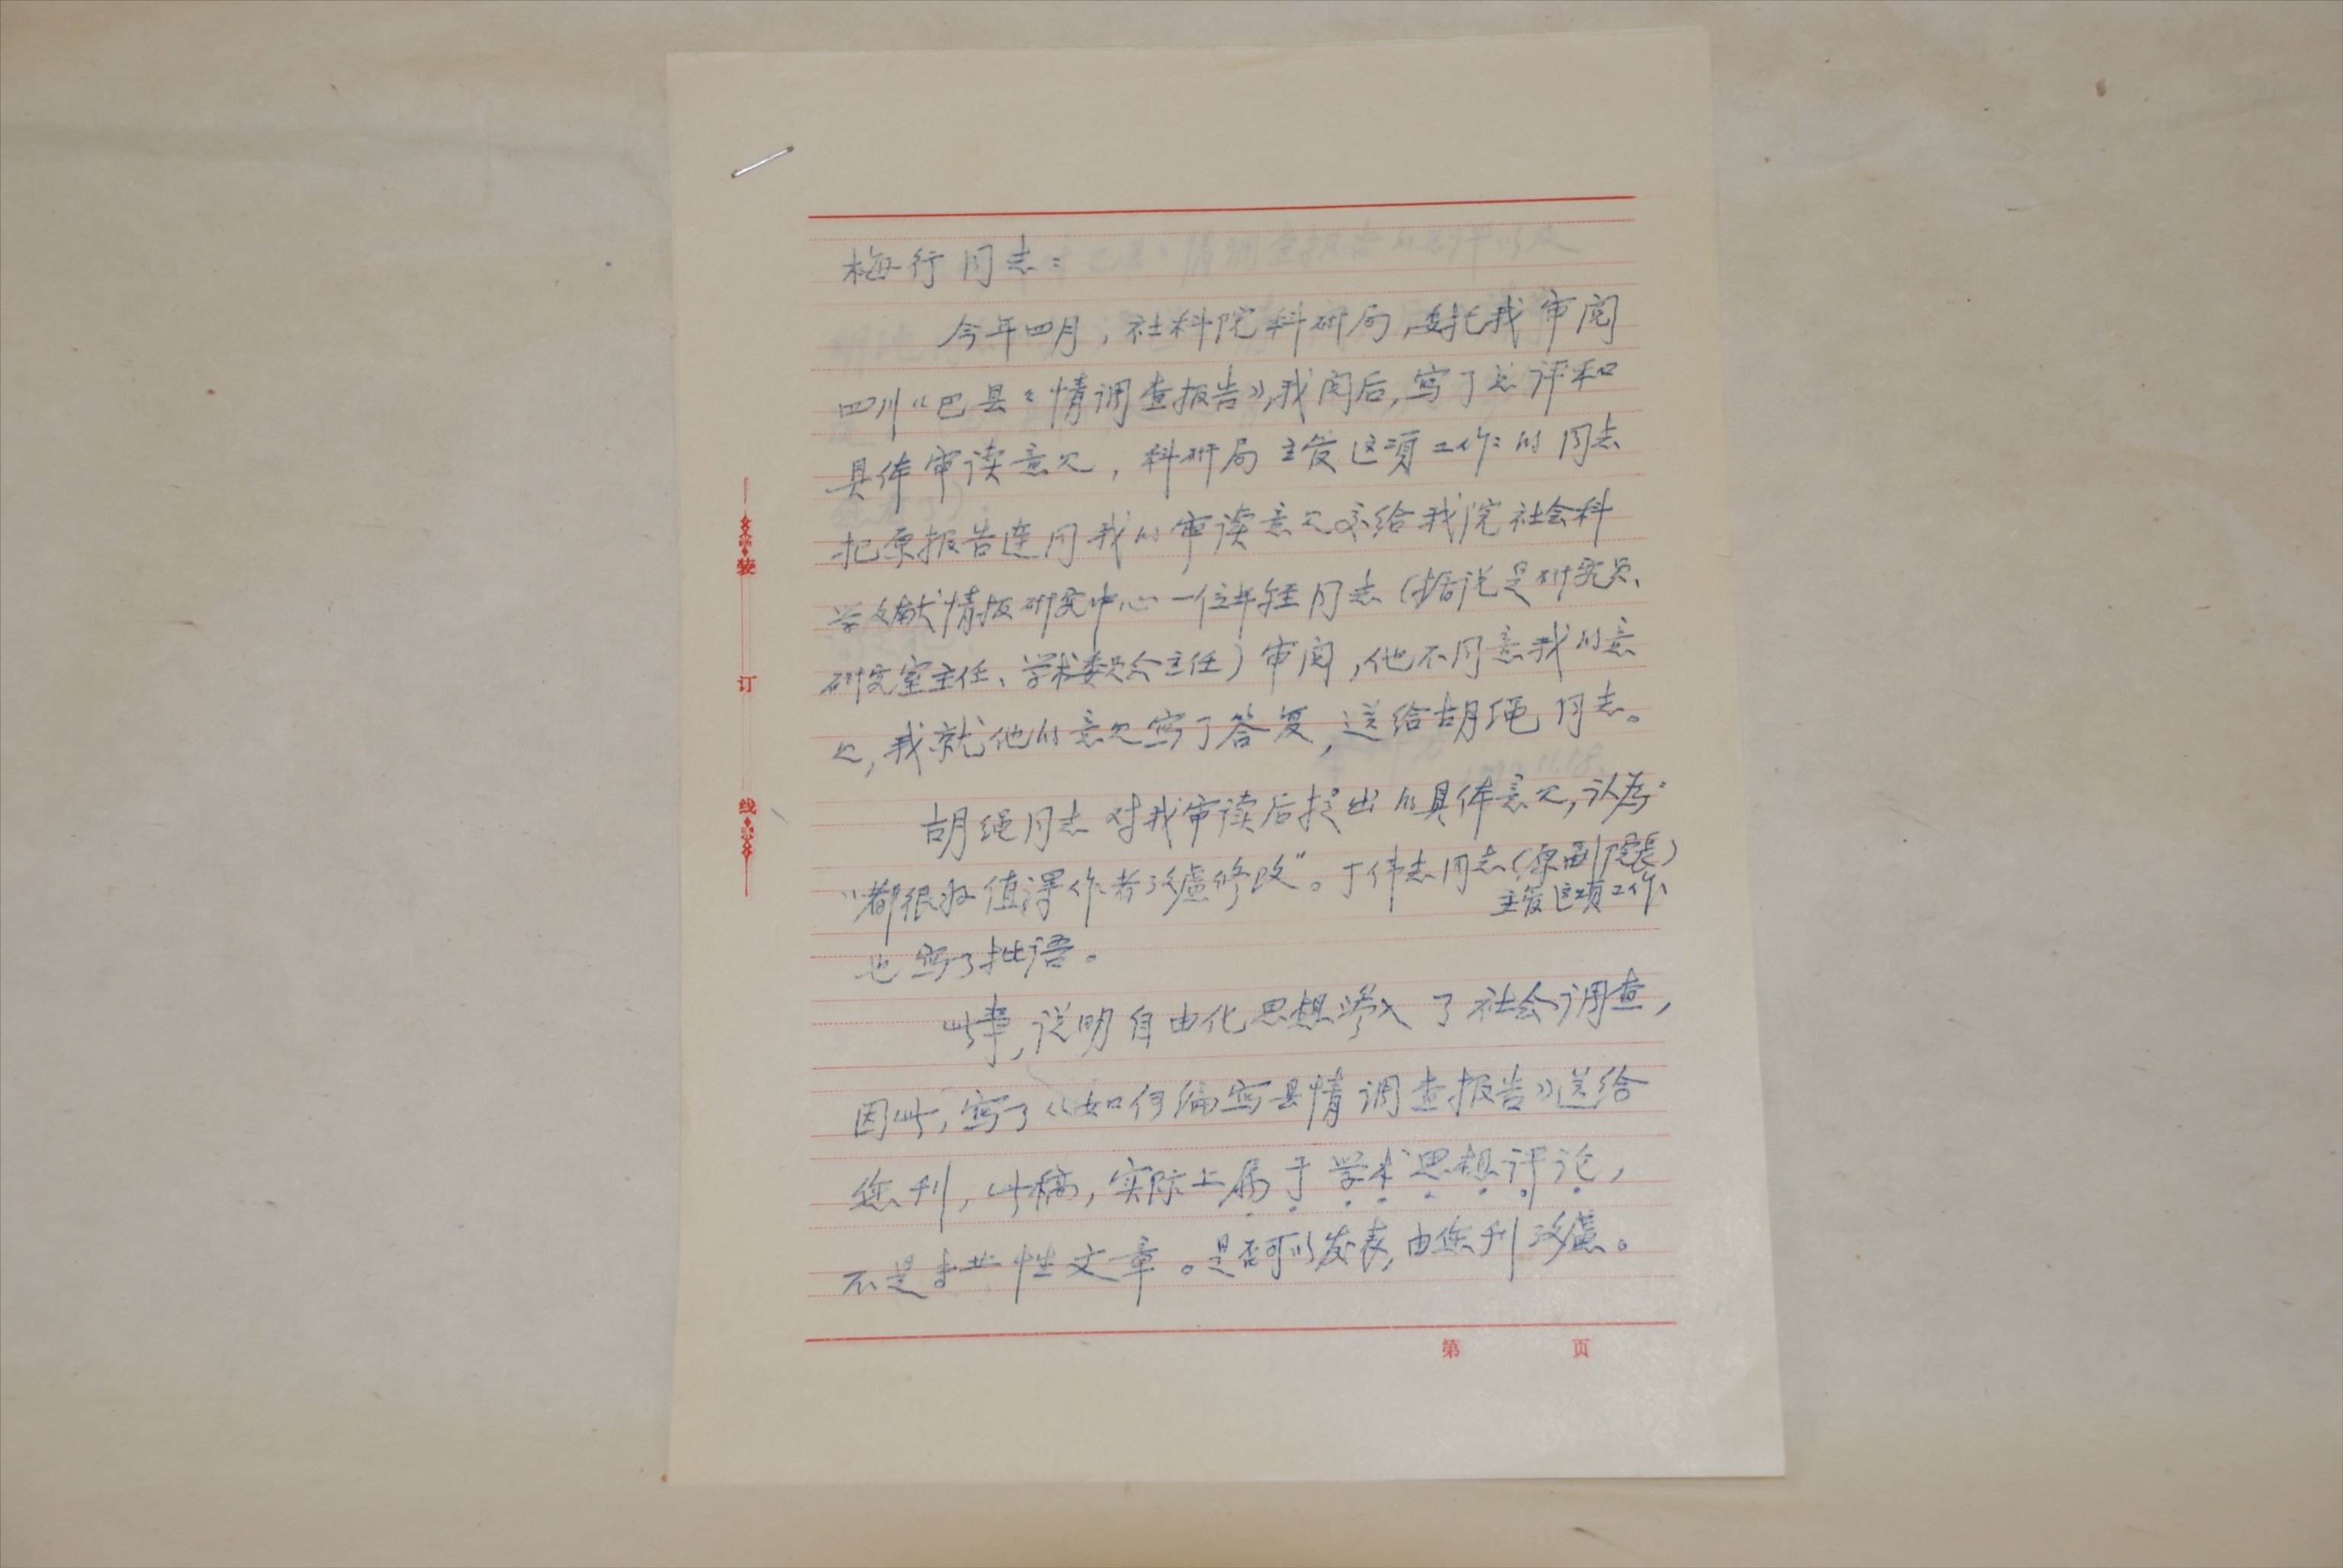 梅行同志：
今年四月，社科院科研局，委托我审阅
四川《巴县县情调查报告》，我阅后，写了总评和
具体审读意见，科研局主管这项工作的同志
把原报告连同我的审读意见交给我院社会科
学文献情报研究中心一位年轻同志（据说是研究员、
研究室主任、学术委员会主任）审阅，他不同意我的意
见，我就他的意见写了答复，送给胡绳同志。
胡绳同志对我审读后提出的具体意见，认为：
“都很好值得作者考虑修改”。丁伟志同志（原副院長）
主管这项工作，
也写了批语。
此事，说明自由化思想渗入了社会调查，
因此，写了《如何编写县情调查报告》送给
您刊，此稿，实际上属于学术思想评论，
不是专业性文章。是否可以发表，由您刊考慮。
装
订
线
第 页